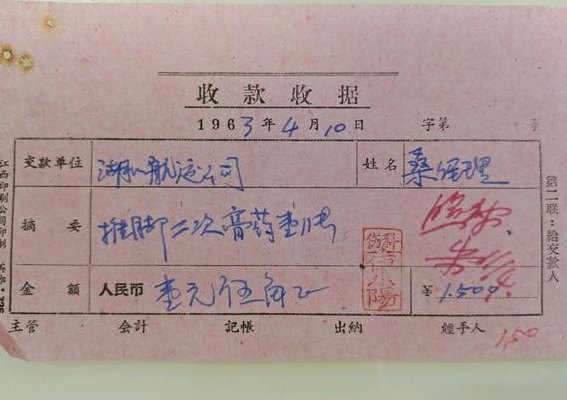 收款收据
1963年4月10日 字第
交款单位 湖口航运公司 姓名 桑经理
摘要 推脚二次膏药壹张
金额 人民币 壹元伍角正 ¥1.500
主管 会计 记帐 出纳 经手人
150
伤科
第二联：给交款人
江西印刷公司印制